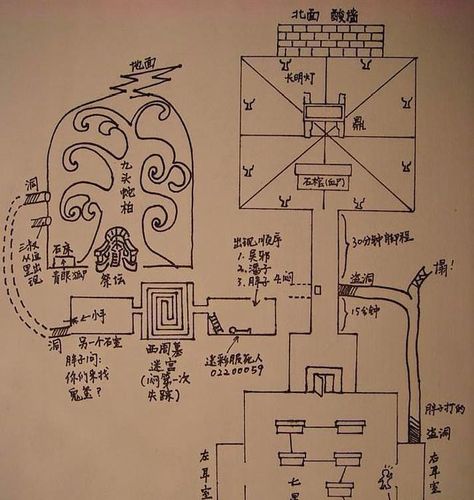 北面 酸墙
地面
长明灯
鼎
九头蛇柏
洞
石棺(血尸)
三叔
从这
里出
现
石床
青眼狐
祭坛
出现顺序
1. 吴邪
2. 潘子
3. 胖子 4. 闷
30分钟脚程
塌!
盗洞
15分钟
小手
洞
另一个石室
胖子问:
你们来找
鬼玺?
西周墓
迷宫
(闷第一次
失踪)
迷彩服死人
02200059
胖子打的
盗洞
左耳室
右耳室
七星